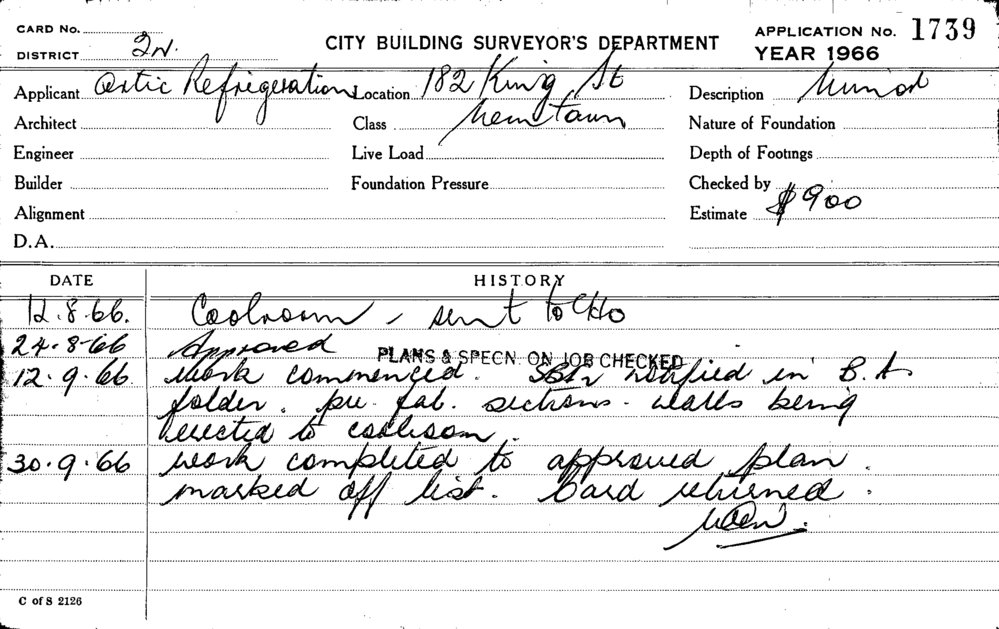 CARD No.
DISTRICT 2N.
CITY BUILDING SURVEYOR'S DEPARTMENT
APPLICATION No. 1739
YEAR 1966
Applicant Artic Refrigeration Location 182 King St Description Minor
Architect Class Newtown Nature of Foundation
Engineer Live Load Depth of Footings
Builder Foundation Pressure Checked by
Alignment Estimate $900
D.A.
DATE HISTORY
12.8.66. Coolroom, sent to
24.8.66 Approved
PLANS & SPECN. ON JOB CHECKED
12.9.66 Work commenced. notified in B.A
folder. pre. fab. sections. walls being
erected to coolroom.
30.9.66 Work completed to approved plan.
marked off list. Card returned.
C of S 2126